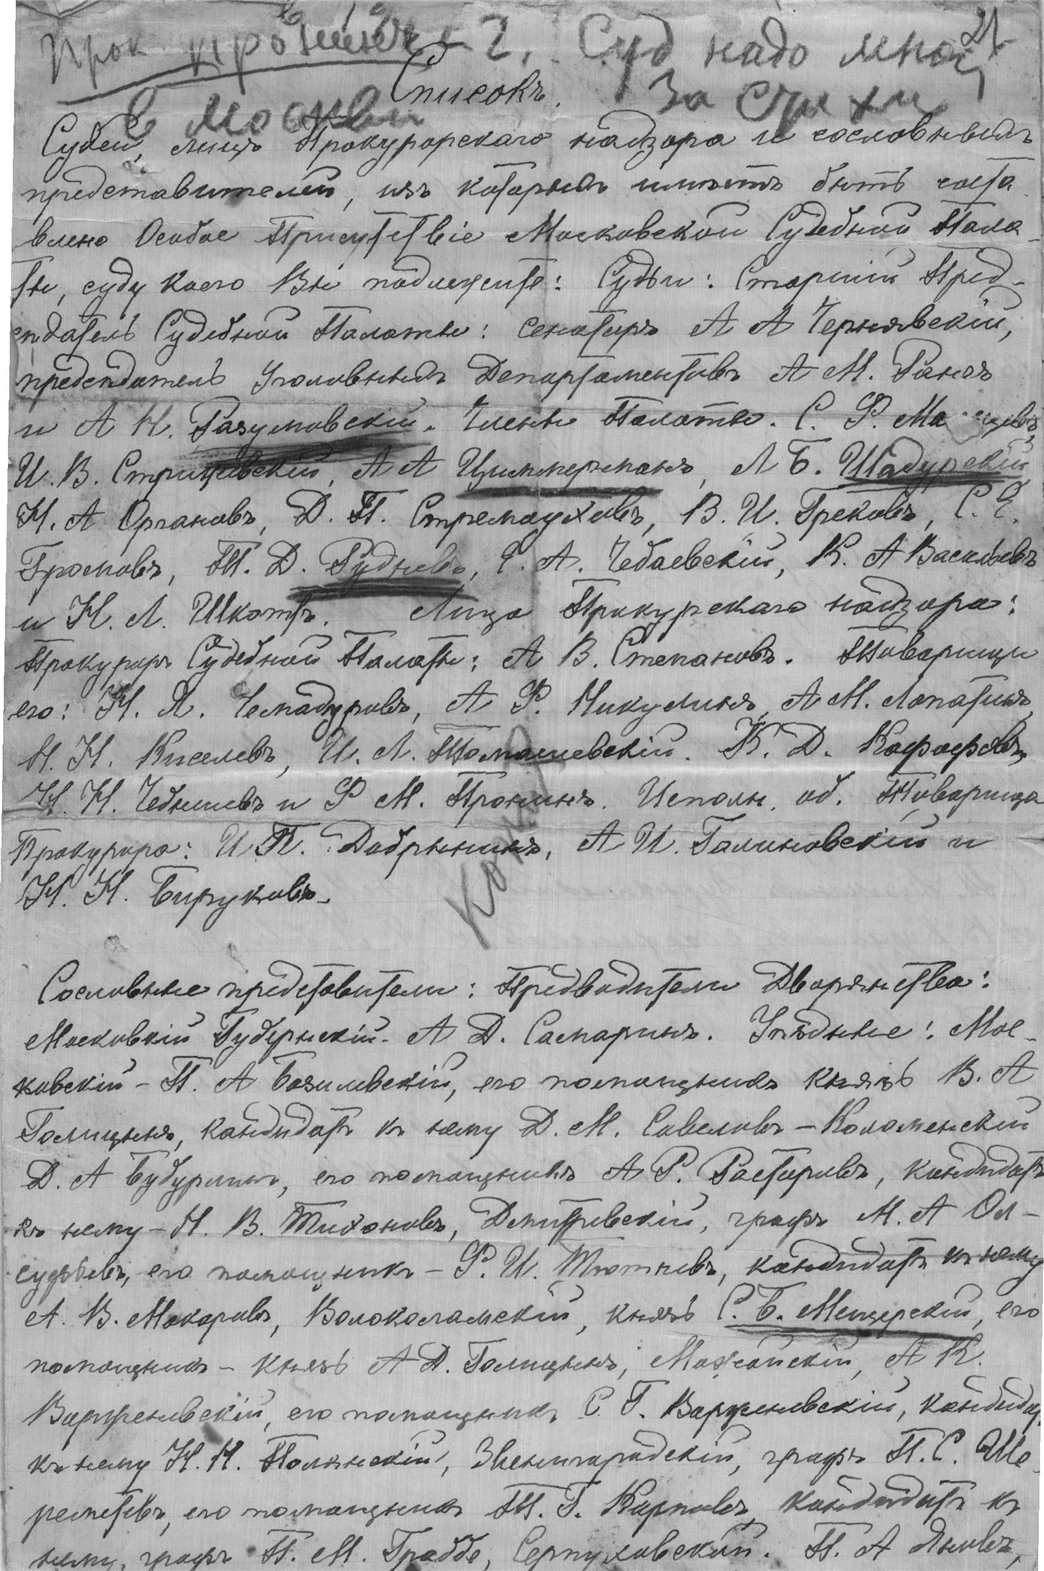 Прок 2. Суд надо мной 21
в Москве За стихи
Списокъ.
Судей, лицъ Прокурорскаго надзора и сословныхъ
представителей, изъ которыхъ имѣетъ быть соста
влено Особое Присутствіе Московской Судебной Пала-
ты, суду коего Вы подлежите: Судьи: Старшій Пред-
сѣдатель Судебной Палаты: сенаторъ А А Чернявскій,
предсѣдатель Уголовныхъ Департаментовъ А М. Ранкъ
и А Н. Разумовскій. Члены Палаты. С. Ф. Ма
И. В. Стрижевскій, А А Циммерманъ, Л Б. Шадурскій
Н. А Органовъ, Д. П. Стремоуховъ, В. И. Грековъ, С. Е.
Громовъ, П. Д. Рудневъ, Е. А. Чебаевскій, К. А Васильевъ
и Н. Л. Шкоттъ. Лица Прокурскаго надзора:
Прокуроръ Судебной Палаты: А В. Степановъ. Товарищи
его: Н. Я. Чемадуровъ, А Ф. Никулинъ, А М. Лопатинъ,
Н. Н. Киселевъ, И. Л. Томашевскій. К. Д. Кафафовъ,
Н. Н. Чебышевъ и Ф М. Пронинъ. Исполн. об. Товарища
Прокурора: И П. Добрынинъ, А И. Галиновскій и
Н. Н. Бируковъ.
Сословные представители: Предводители Дворянства:
Московскій Губернскій. А Д. Самаринъ. Уѣздные: Мос-
ковскій – П. А Базилевскій, его помощникъ князь В. А
Голицынъ, кандидатъ къ нему Д. М. Савеловъ – Коломенскій
Д. А Бутурлинъ, его помощникъ А Р. Растаровъ, кандидатъ
къ нему – Н. В. Тихоновъ, Дмитровскій, графъ М. А Ол-
суфьевъ, его помощникъ – Ф. И. Тютчевъ, кандидатъ къ нему
А. В. Макаровъ, Волоколамскій, князь С. Б. Мещерскій, его
помощникъ – князь А Д. Голицынъ, Можайскій, А К.
Варженевскій, его помощникъ С Г. Варженевскій, кандидат
къ нему Н. Н. Полянскій, Звенигородскій, графъ П. С. Ше-
реметевъ, его помощникъ П. Г. Карповъ, кандидатъ къ
нему, графъ П. М. Граббе, Серпуховской. П. А Яновъ,